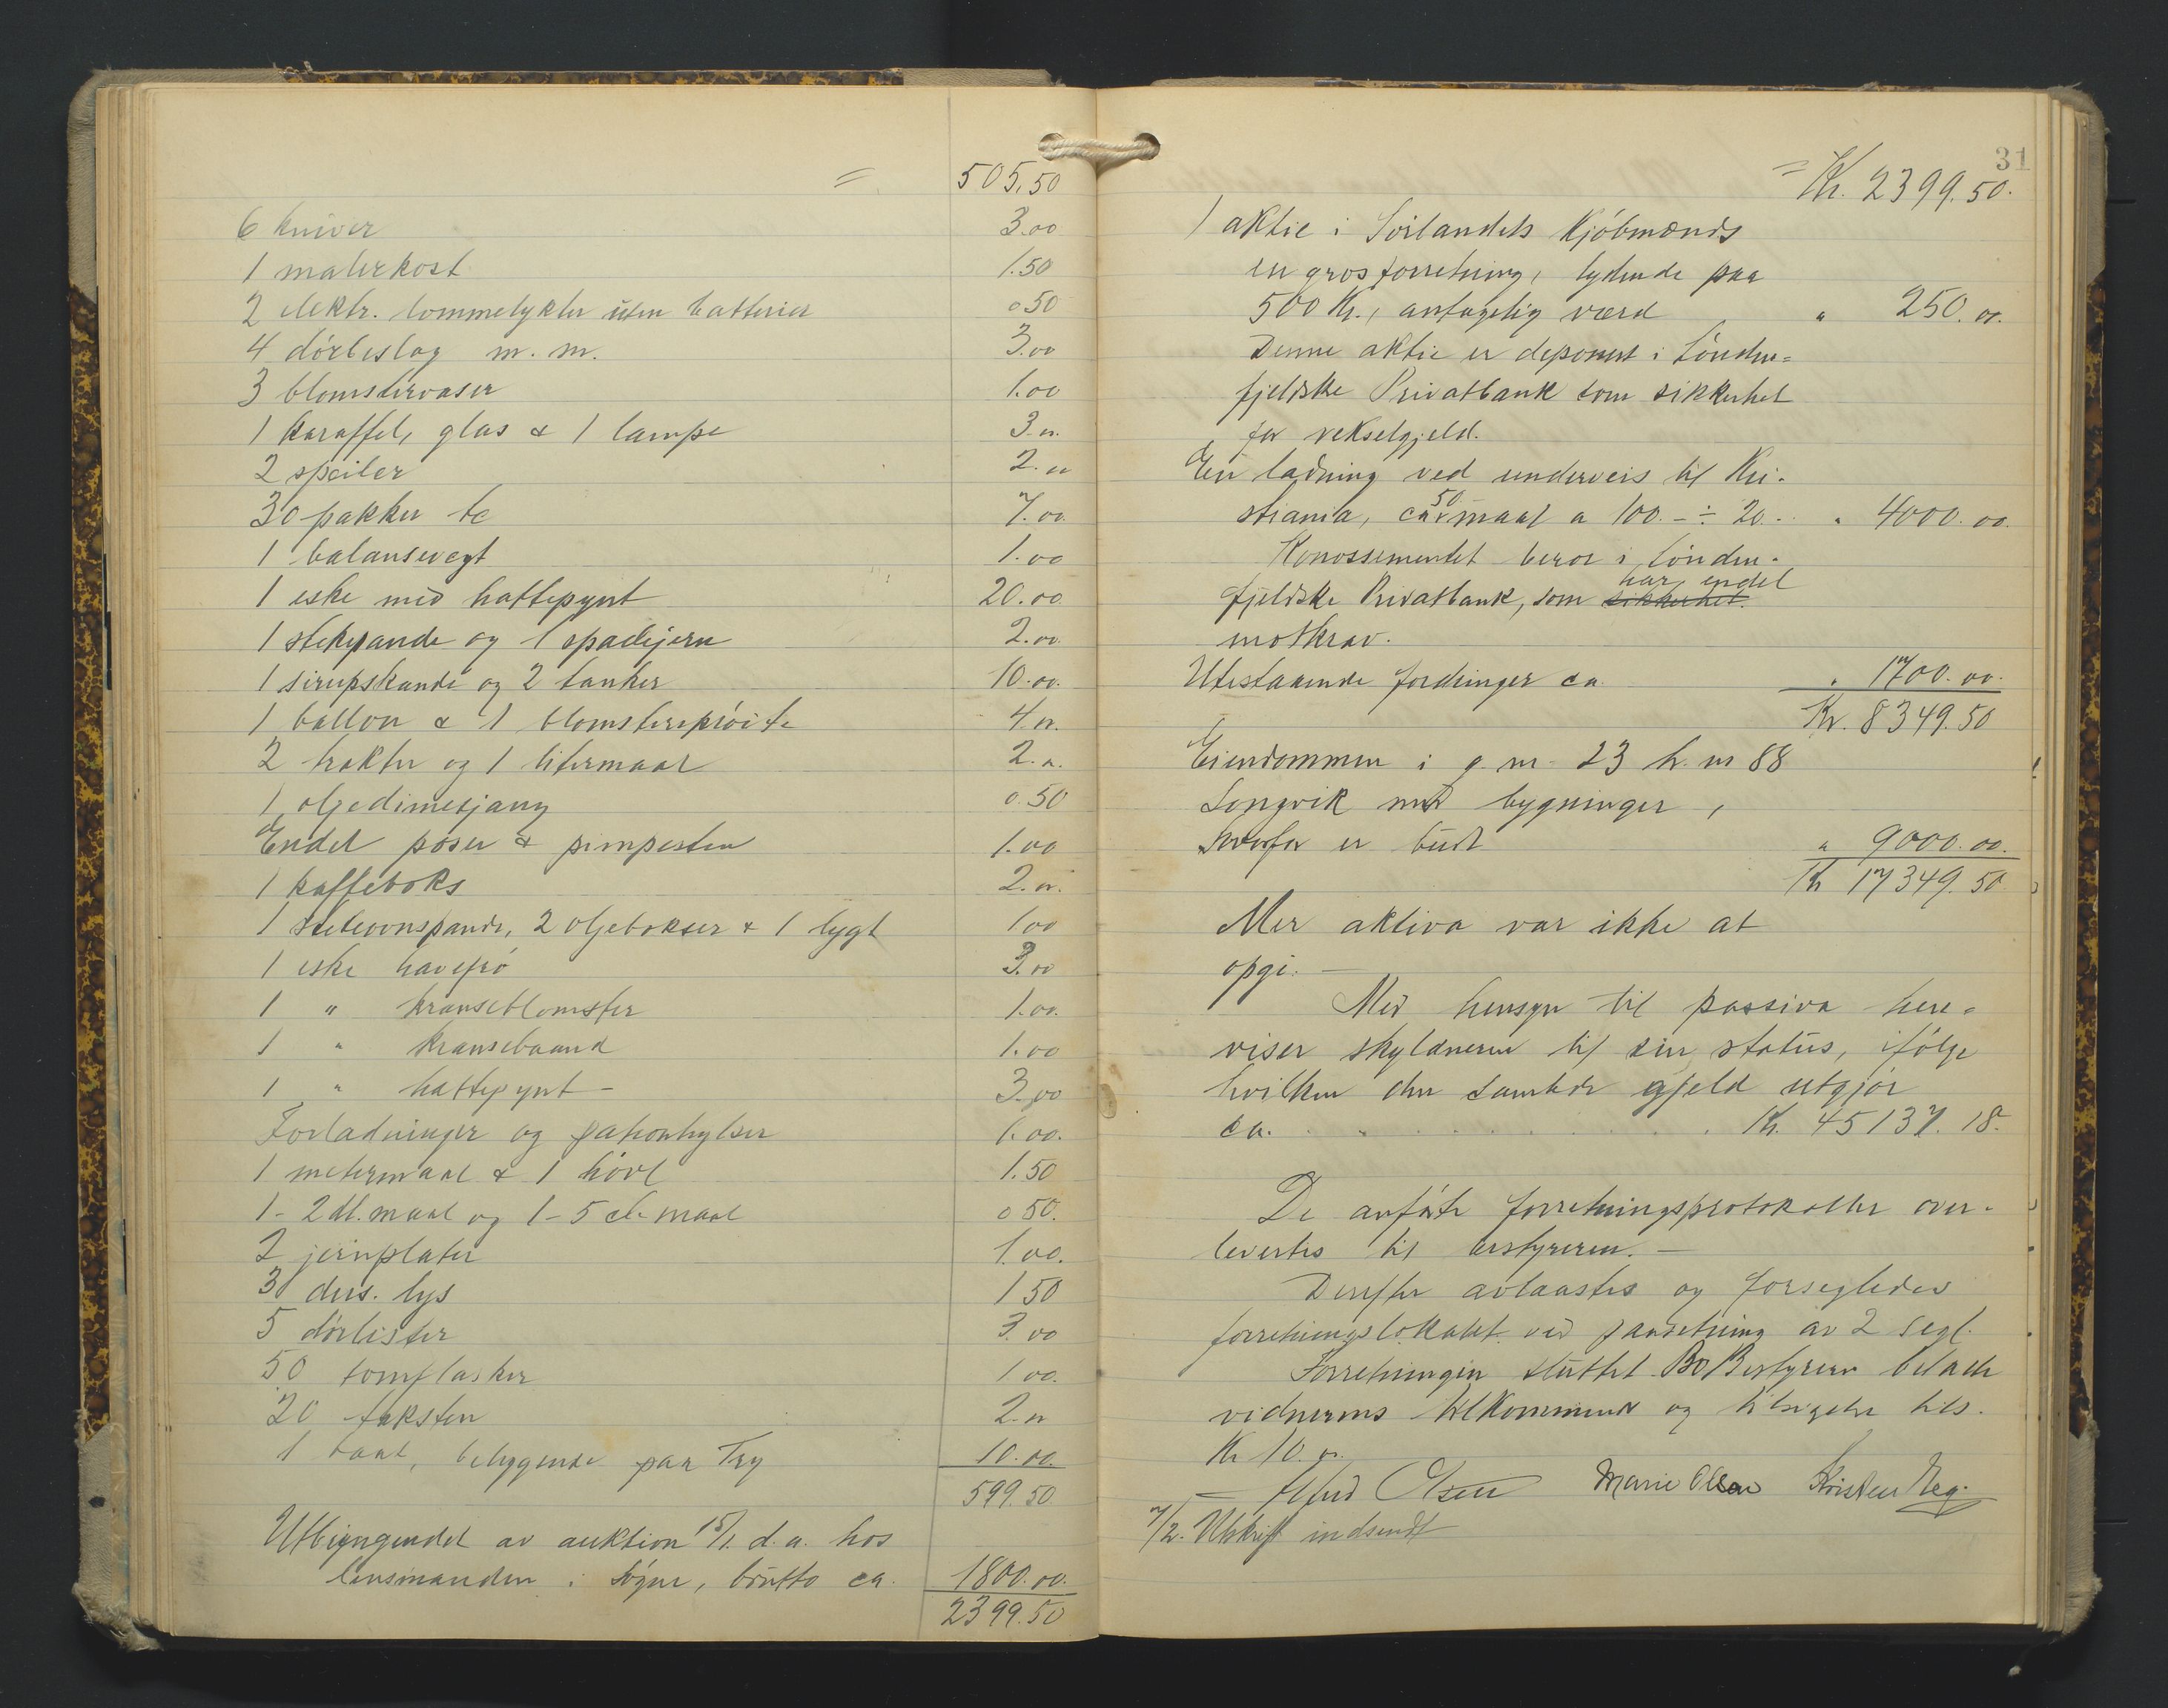 = 505.50
6 kniver 3.00
1 malerkost 1.50
2 elektr. lommelykter uten batterier 0 50
4 dörbeslag m. m. 3.00
3 blomstervaser 1.00
1 karaffel, glas & 1 lampe 3.00
2 speiler 2.00
30 pakker te 7.00
1 balansevegt 1.00
1 eske med hattepynt 20.00
1 stekepande og 1 spadejern 2.00
1 sirupskande og 2 tanker 10.00
1 ballon & 1 blomstersprøite 4.00
2 trakter og 1 litermaal 2.00
1 oljedimesjang 0.50
Endel poser & pimpesten 1.00
1 kaffeboks 2.00
1 stekeovnspande, 2 oljebokser & 1 lygt 1 00
1 eske havefrö 3.00
1 " kranseblomster 1.00
1 " kransebaand 1.00
1 " hattepynt 3.00
Forladninger og patronhylser 1.00
1 metermaal & 1 hövl 1.50
1 - 2 dl. maal og 1 - 5 cl. maal 0 50
2 jernplater 1.00
3 dus. lys 1 50
5 dörlister 3.00
50 tomflasker 1 00
20 taksten 2.00
1 baat, beliggende paa Try 10.00
599.50
Utbringendet av auktion 15/1. d.a. hos
lensmanden i Sögne, brutto ca. 1800.00
2399.50
31
= Kr. 2399.50.
1 aktie i Sörlandets Kjöbmænds
en gros forretning, lydende paa
500 Kr., antagelig værd " 250.00
Denne aktie er deponert i Sönden-
fjeldske Privatbank som sikkerhet
for vekselgjeld.
En ladning ved underveis til Kri-
stiania, ca 50 maal a 100.- ÷ 20.- " 4000.00.
Konossementet beror i Sönden-
fjeldske Privatbank, som sikkerhet. har endel
motkrav.
Utestaaende fordringer ca. " 1700.00.
Kr. 8349.50
Eiendommen i g. nr. 23 b. nr 88
Langvik med bygninger,
hvorfor er budt " 9000.00.
Kr 17349.50
Mer aktiva var ikke at
opgi. —
Med hensyn til passiva hen-
viser skyldneren til sin status, ifölge
hvilken den samlede gjeld utgjör
ca. . . . . . . . . . Kr. 45137.18.
De anförte forretningsprotokoller over-
levertes til bestyreren. —
Derefter avlaastes og forsegledes
forretningslokalet ved paasetning av 2 segl.
Forretningen sluttet. Bobestyreren betalte
vidnernes tilkommende og
Kr 10.00
Olsen Marie Olsen Kristen Reg.
7/2. Utskrift indsendt